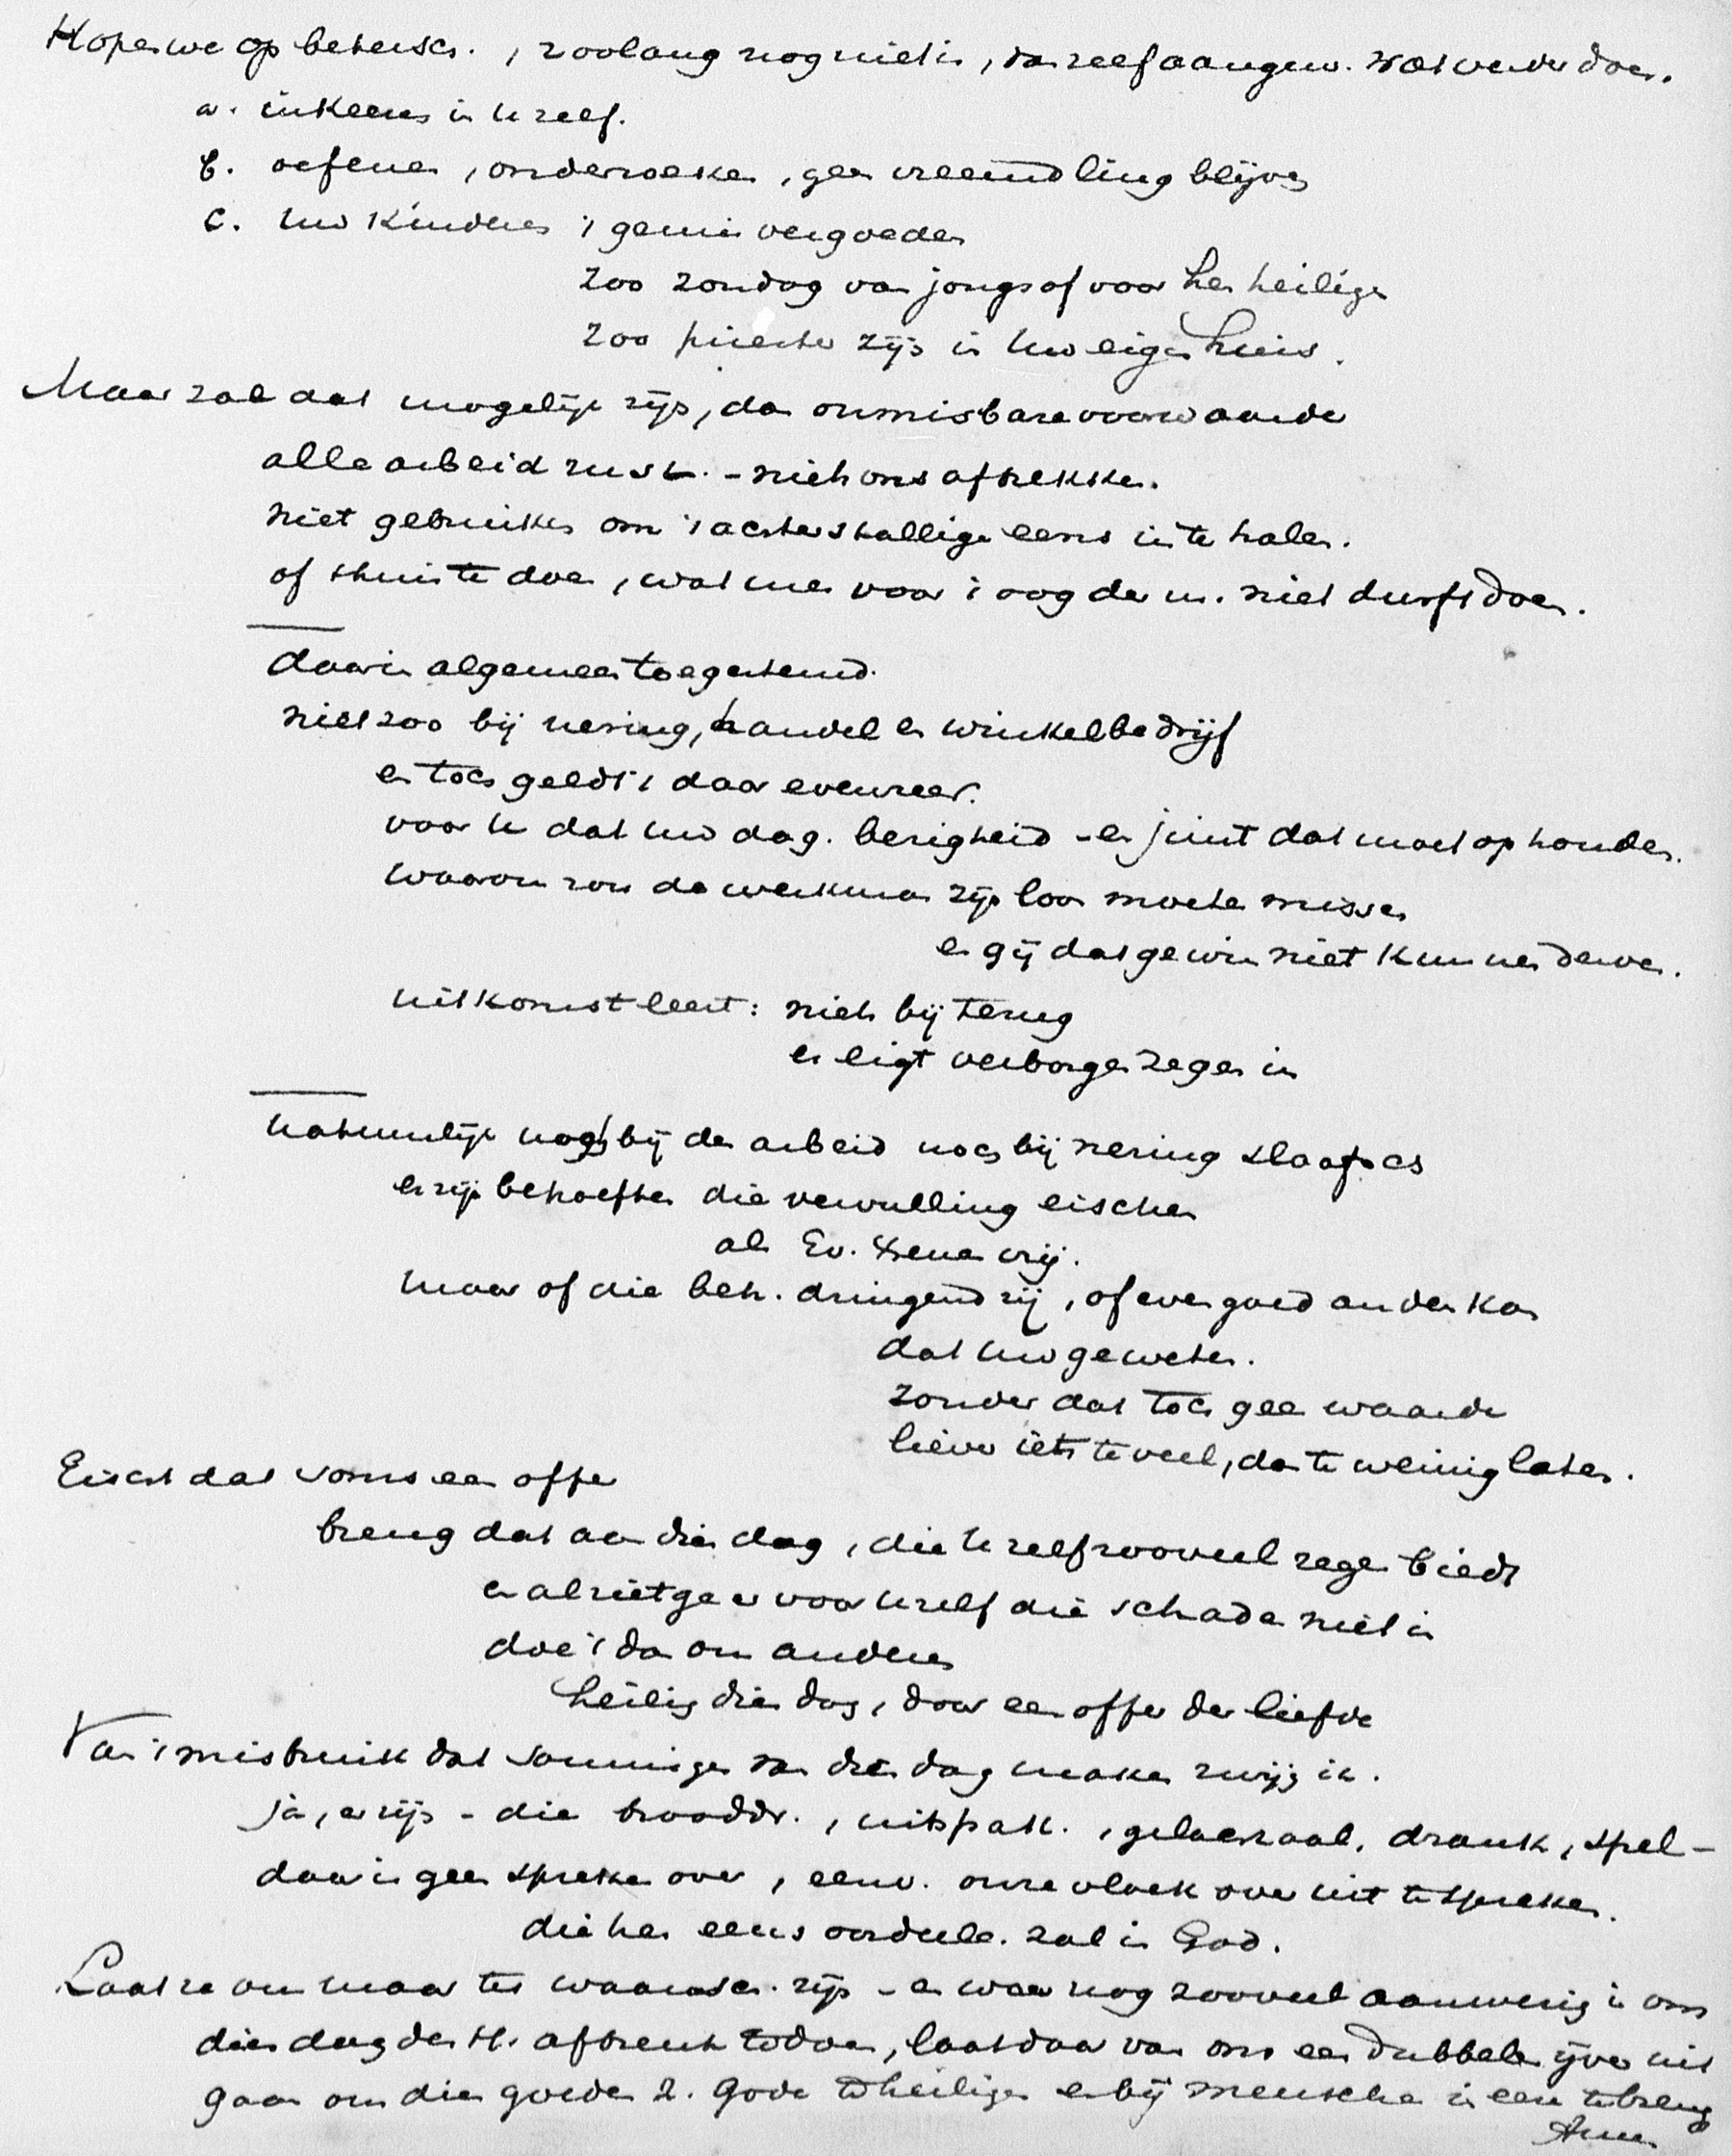 Hopen we op betersch. , zoolang nog niet is, dan zelf aangew. Wat verder doen.
a. inkeeren in U zelf.
b. oefenen, onderzoeken, geen vreemdling blijven
c. Uw kinderen 't gemis vergoeden
zoo zondag van jongs af voor hen heiligen
zoo priester zijn in Uw eigen huis.
Maar zal dat mogelijk zijn, dan onmisbare voorwaarde
alle arbeid rust. - niets ons aftrekken.
niet gebruiken om 't achterstallige eens in te halen.
of thuis te doen, wat men voor 't oog der m. niet durft doen.
daar in algemeen toegestemd.
niet zoo bij nering, handel en winkelbedrijf
en toch geldt 't daar evenzeer.
voor U dat Uw dag. bezigheid - en juist dat moet ophouden.
waarom zou de werkman zijn loon moeten missen
en gij dat gewin niet kunnen derven.
uitkomst leert: niets bij terug
er ligt verborgen zegen in
natuurlijk noch bij den arbeid noch bij nering slaafsch
er zijn behoeften die vervulling eischen
als Ev. Dienen vrij.
Maar of die beh. dringend zij, of even goed anders kan
dat Uw geweten.
zonder dat toch geen waarde
liever iets te veel, dan te weinig laten.
Eischt dat soms een offer
breng dat aan dien dag, die U zelf zooveel zegen biedt
en al ziet ge er voor Uzelf die schade niet in
doe 't dan om anderen
heilig dien dag, door een offer der liefde
Van 't misbruik dat sommigen van dien dag maken zwijg ik.
ja, er zijn - die brooddr. , uitspatt. , gelach , drank, spel -
daar is geen spreken over, eenv. onze vloek over uit te spreken.
die hen eens oordeele. zal is God.
Laat ze ons maar ter waarsch. zijn - en waar nog zooveel aanwezig is om
dien dag des H. afbreuk te doen, laat daar van ons een dubbele ijver uit
gaan om dien goeden Z. Gode te heiligen en bij menschen in eere te breng
Amen